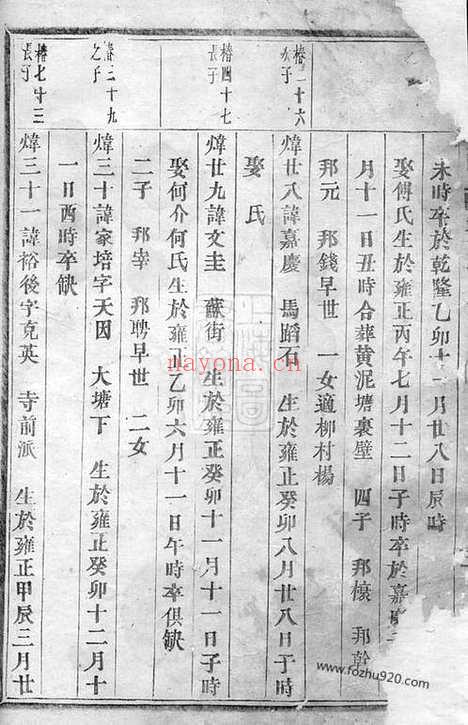 未時卒於乾隆乙卯十一月廿八日辰時
娶傅氏生於雍正丙午七月十二日子時卒於嘉慶
月十一日丑時合葬黄泥塘裏壁 四子 邦榱 邦幹
邦元 邦錢早世 一女適柳村楊
椿二十六
次子
煒廿八諱嘉慶 馬蹈石 生於雍正癸卯八月廿八日子時
娶 氏
椿四十七
長子
煒廿九諱文圭 蘇街 生於雍正癸卯十一月十一日子時
娶何介何氏生於雍正乙卯六月十一日午時卒俱缺
二子 邦宰 邦聘早世 二女
椿二十九
之子
煒三十諱家培字天因 大塘下 生於雍正癸卯十二月十
一日酉時卒缺
椿七十三
長子
煒三十一諱裕後字克英 寺前派 生於雍正甲辰三月廿
nayona.cn
www.fozhu920.com